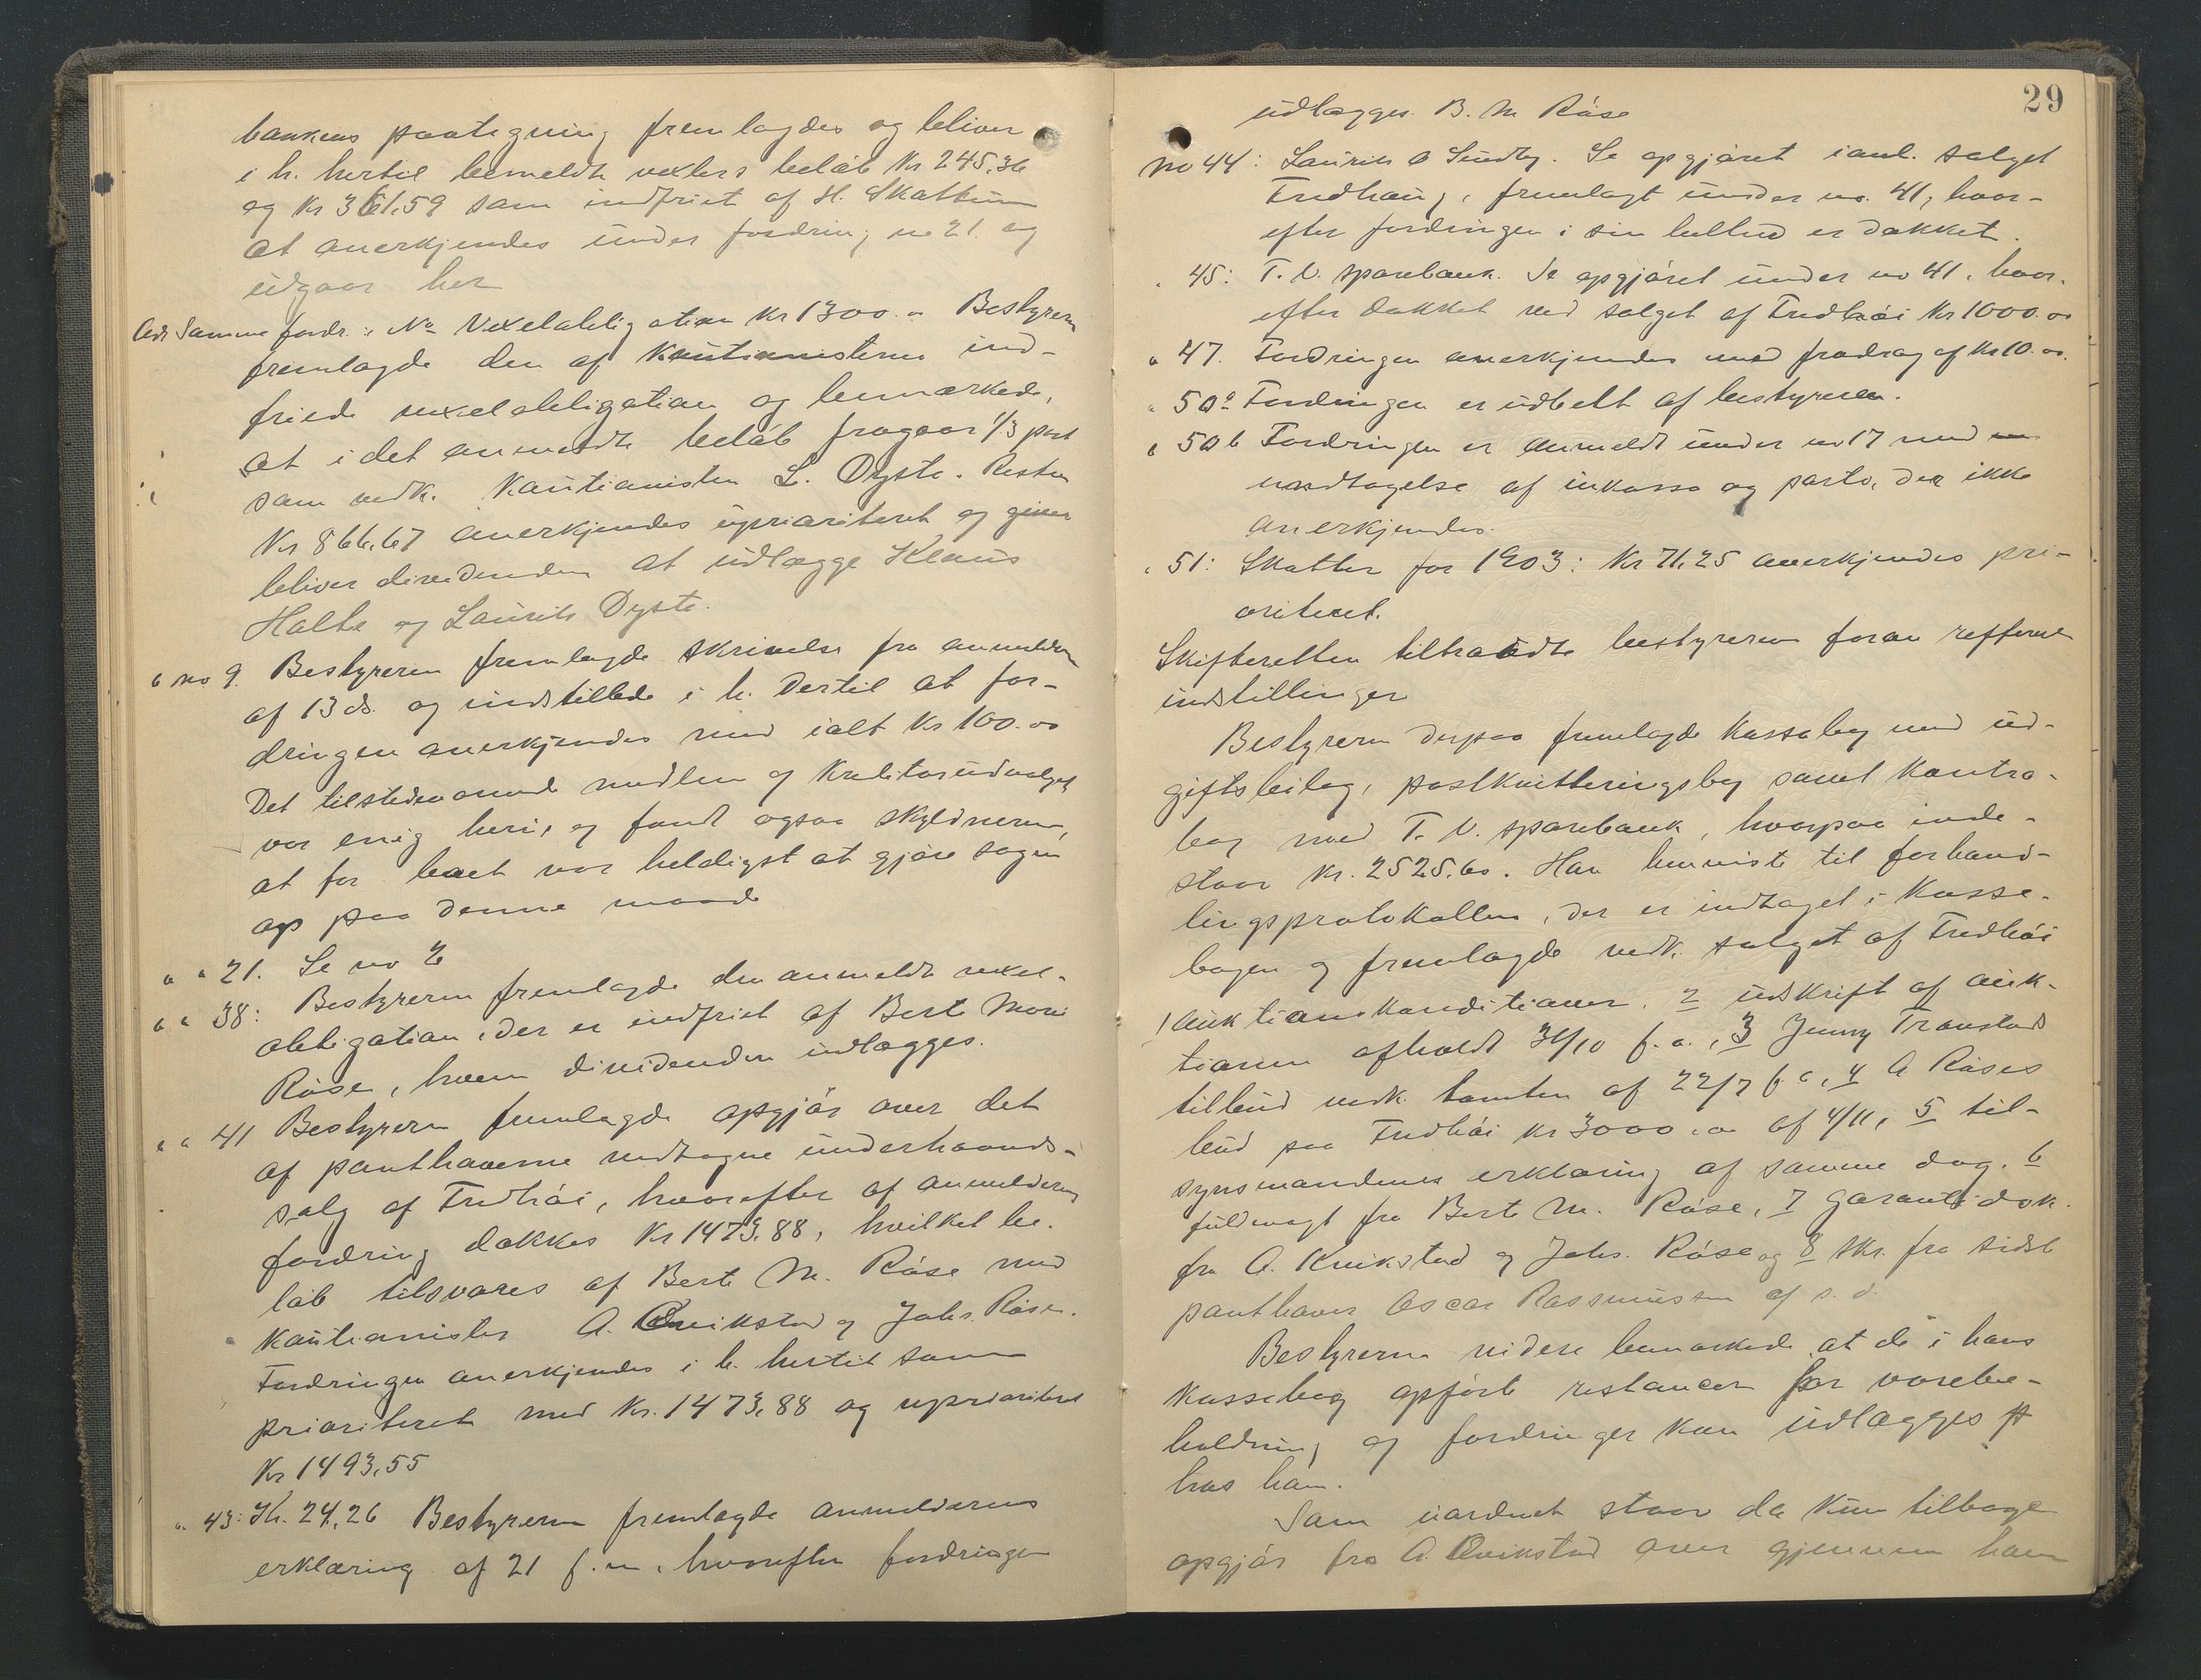 bankens paategning fremlagdes og bliver
i h. hertil bemeldte vexlers beløb Kr 245,36
og Kr 361,59 som indfriet af H. Skattum
at anerkjendes under fordring no 21. og
udgaar her
Ad. Samme fordr.: Vexelobligation Kr 1300.00 Bestyreren
fremlagde den af Kautionisterne ind-
friede vexelobligation og bemærkede,
at i det anmeldte beløb fragaar 1/3 part
som vedk. Kautionisten L. Dyste. Resten
Kr 866,67 anerkjendes uprioriteret og
bliver dividenden at udlægge Klaus
Halte og Laurits Dyste.
" no 9. Bestyreren fremlagde skrivelse fra anmelderen
af 13 ds. og indstillede i h. dertil at for-
dringen anerkjendes med ialt Kr 100.00
Det tilstedeværende medlem af Kreditorudvalget
var enig heri, og fandt ogsaa skyldneren,
at for boet var heldigst at gjøre sagen
op paa denne maade
" " 21. Se no 2
" " 38: Bestyreren fremlagde den anmeldte vexel-
obligation, der er indfriet af Berte Marie
Røise, hvem dividenden udlægges.
" " 41 Bestyreren fremlagde opgjør over det
af panthaverne vedtagne underhaands-
salg af Fredhøi, hvorefter af anmelderens
fordring dækkes Kr 1473,88, hvilket be-
løb tilsvares af Berte M. Røise med
Kautionister A. Qvikstad og Johs. Røise.
Fordringen anerkjendes i h. hertil som
prioriteret med Kr. 1473,88 og uprioriteret
Kr 1493,55
" 43: Kr. 24,26 Bestyreren fremlagde anmelderens
erklæring af 21 f.m., hvorefter fordringen
29
udlægges B. M Røise
no 44: Laurits O Sundby. Se opgjøret i anl. salget
Fredhaug, fremlagt under no. 41, hvor-
efter fordringen i sin helhed er dækket.
" 45: T. V. sparebank. Se opgjøret under no 41. hvor-
efter dækket ved salget af Fredhøi Kr 1000.00
" 47. Fordringen anerkjendes med fradrag af Kr 10.00.
" 50a Fordringen er udbelt af bestyreren.
" 50b Fordringen er anmeldt under no 17 med
undtagelse af inkasso og porto, der ikke
anerkjendes.
" 51: Skatter for 1903: Kr 71,25 anerkjendes pri-
oriteret.
Skifteretten tiltraadte bestyrerens foran refferte
indstillinger
Bestyreren derpaa fremlagde Kassabog med ud-
giftsbilag, postkvitteringsbog samt Kontra-
bog med T. V. sparebank, hvorpaa inde-
staar Kr. 2525,60. Han henviste til forhand-
lingsprotokollen, der er indtaget i Kasse-
bogen og fremlagde vedk. salget af Fredhøi
1 auktionskonditioner. 2 udskrift af auk-
tionen afholdt 31/10 f.a., 3 Jenny Transtads
tilbud vedk. tomten af 22/7 f.a., 4 A Røises
bud paa Fredhøi Kr 3000.00 af 4/11, 5 til-
synsmændenes erklæring af samme dag. 6
fuldmagt fra Berte M. Røise, 7 Garantidok.
fra A. Kvikstad og Johs. Røise og 8 skr. fra sidste
panthaver Oscar Rasmussen af s. d.
Bestyreren videre bemærkede at de i hans
Kassebog opførte restancer for varebe-
holdning og fordringer kan udlægges
hos ham.
Som uordnet staar da Kun tilbage
opgjør fra A. Qvikstad over gjennem ham